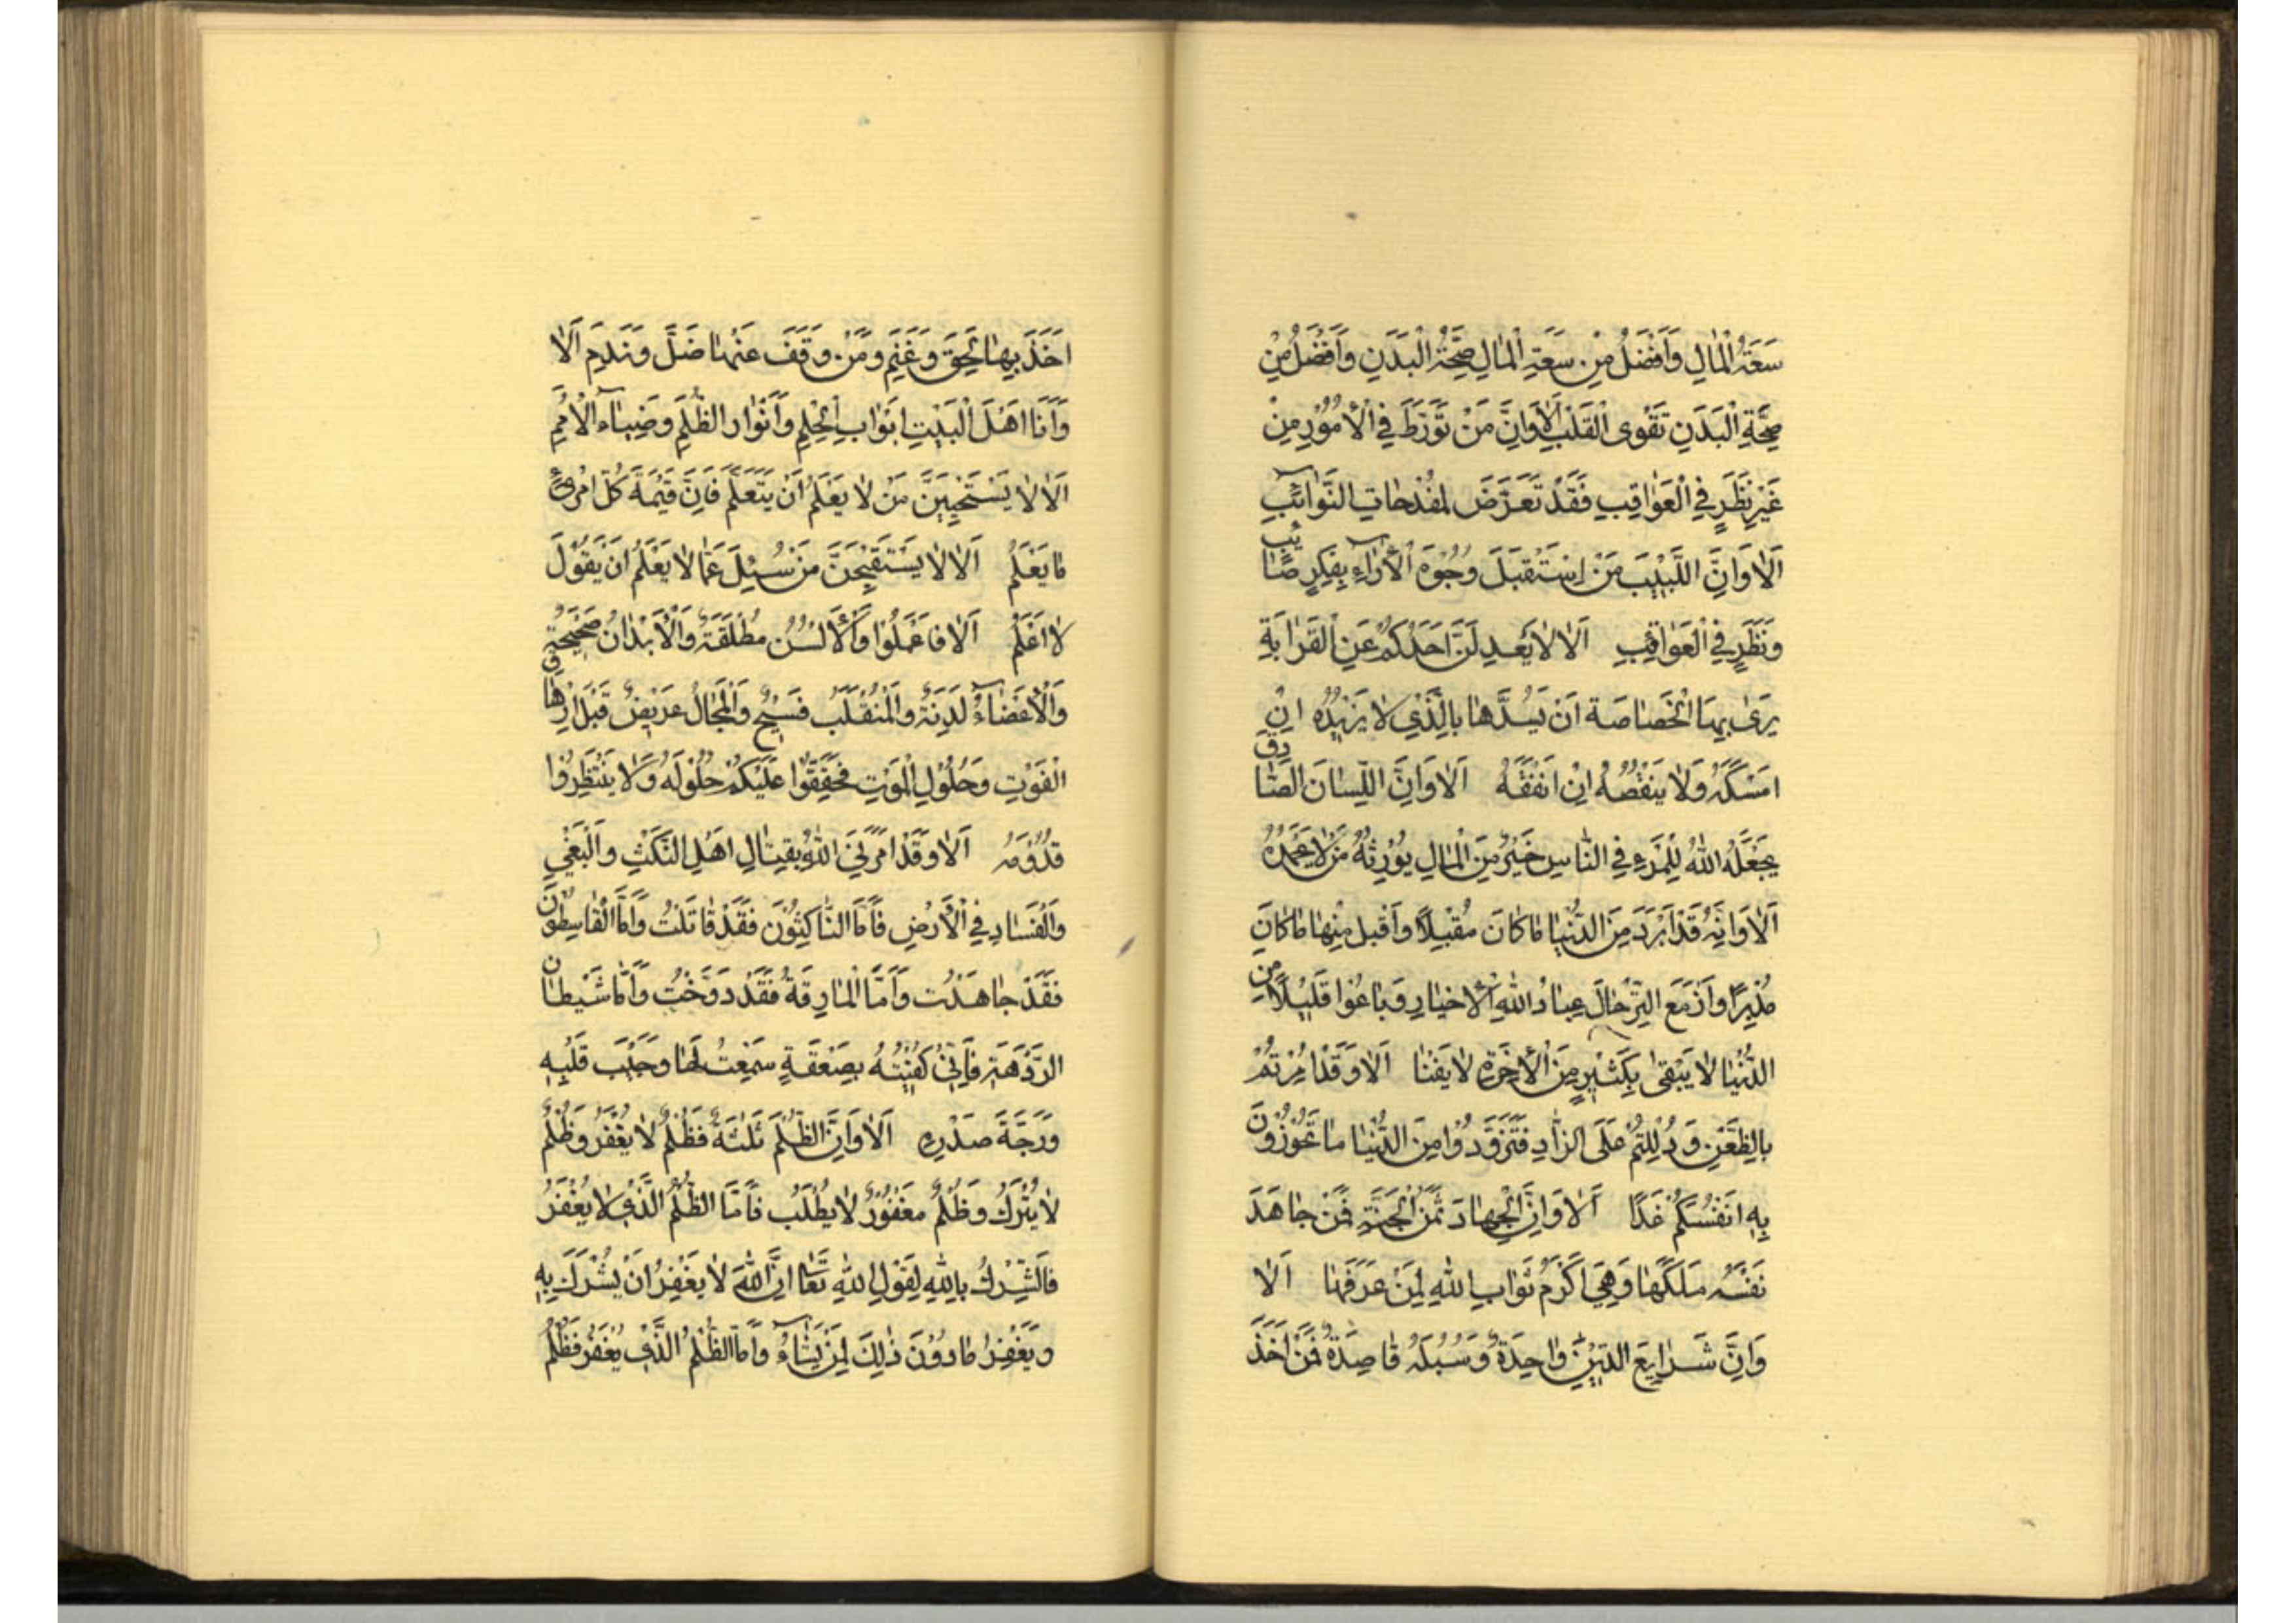 سَعَةُ الْمٰالِ وَاَفْضَلُ مِنْ سَعَةِ الْمٰالِ صِحَّةُ الْبَدَنِ وَاَفْضَلُ مِنْ
صِحَّةِ الْبَدَنِ تَقْوَى الْقَلْبِ اَلٰا وَاِنَّ مَنْ تَوَرَّطَ فِي الْاُمُوْرِ مِنْ
غَيْرِ نَظَرٍ فِي الْعَوٰاقِبِ فَقَدْ تَعَرَّضَ لِمُفْدِحٰاتِ النَّوٰائِبِ
اَلٰا وَاِنَّ اللَّبِيْبَ مَنْ اِسْتَقْبَلَ وُجُوْهَ الْاٰرٰاءِ بِفِكْرٍ صٰائِبٍ
وَنَظَرٍ فِي الْعَوٰاقِبِ اَلٰا لٰا يَعْدِلَنَّ اَحَدُكُمْ عَنِ الْقَرٰابَةِ
يَرٰى بِهَا الْخَصٰاصَة اَنْ يَسُدَّهٰا بِالَّذِيْ لٰا يَزِيْدُهُ اِنْ
اَمْسَكَهُ وَلٰا يَنْقُصُهُ اِنْ اَنْفَقَهُ اَلٰا وَاِنَّ اللِّسٰانَ الصّٰادِقَ
يَجْعَلُهُ اللهُ لِلْمَرْءِ فِي النّٰاسِ خَيْرٌ مِنَ الْمٰالِ يُوْرِثُهُ مَنْ لٰا يَحْمَدُهُ
اَلٰا وَاِنَّهُ قَدْ اَدْبَرَ مِنَ الدُّنْيٰا مٰا كٰانَ مُقْبِلًا وَاَقْبَلَ مِنْهٰا مٰا كٰانَ
مُدْبِرًا وَاَزْمَعَ التَّرْحٰالَ عِبٰادُ اللهِ الْاَخْيٰارِ وَبٰاعُوْا قَلِيْلًا مِنَ
الدُّنْيٰا لٰا يَبْقٰى بِكَثِيْرٍ مِنَ الْاٰخِرَةِ لٰا يَفْنٰا اَلٰا وَقَدْ اُمِرْتُمْ
بِالظَّعْنِ وَدُلِلْتُمْ عَلَى الزّٰادِ فَتَزَوَّدُوْا مِنَ الدُّنْيٰا مٰا تَحُوْزُوْنَ
بِهِ اَنْفُسَكُمْ غَدًا اَلٰا وَاِنَّ الْجِهٰادَ ثَمَنُ الْجَنَّةِ فَمَنْ جٰاهَدَ
نَفْسَهُ مَلَكَهٰا وَهِيَ اَكْرَمُ ثَوٰابِ اللهِ لِمَنْ عَرَفَهٰا اَلٰا
وَاِنَّ شَرٰايِعَ الدِّيْنِ وٰاحِدَةٌ وَسُبُلَهُ قٰاصِدَةٌ فَمَنْ اَخَذَ
اَخَذَ بِهٰا لَحِقَ وَغَنِمَ وَمَنْ وَقَفَ عَنْهٰا ضَلَّ وَنَدِمَ اَلٰا
وَاَنَا اَهْلَ الْبَيْتِ اَبْوٰابِ الْحِلْمِ وَاَنْوٰارِ الظُّلَمِ وَضِيٰاءِ الْاُمَمِ
اَلٰا لٰا يَسْتَحْيِيَنَّ مَنْ لٰا يَعْلَمُ اَنْ يَتَعَلَّمَ فَاِنَّ قِيْمَةَ كُلِّ امْرِئٍ
مٰا يَعْلَمُ اَلٰا لٰا يَسْتَقْبِحَنَّ مَنْ سُئِلَ عَمّٰا لٰا يَعْلَمُ اَنْ يَقُوْلَ
لٰا اَعْلَمُ اَلٰا فَاعْمَلُوْا وَالْاَلْسُنُ مُطْلَقَةٌ وَالْاَبْدٰانُ صَحِيْحَةٌ
وَالْاَعْضٰاءُ لَدِنَةٌ وَالْمُنْقَلَبُ فَسِيْحٌ وَالْمَجٰالُ عَرِيْضٌ قَبْلَ اِرْهٰاقِ
الْفَوْتِ وَحُلُوْلِ الْمَوْتِ فَحَقِّقُوْا عَلَيْكُمْ حُلُوْلَهُ وَلٰا يَنْتَظِرُوْا
قُدُوْمَهُ اَلٰا وَقَدْ اَمَرَنِيَ اللهُ بِقِتٰالِ اَهْلِ النَّكْثِ وَالْبَغْيِ
وَالْفَسٰادِ فِي الْاَرْضِ فَاَمَّا النّٰاكِثُوْنَ فَقَدْ قٰاتَلْتُ وَاَمَّا الْقٰاسِطُوْنَ
فَقَدْ جٰاهَدْتُ وَاَمَّا الْمٰارِقَةُ فَقَدْ دَوَّخْتُ وَاَمّٰا شَيْطٰانُ
الرَّدْهَةِ فَاِنِّيْ كُفِيْتُهُ بِصَعْقَةٍ سَمِعْتُ لَهٰا وَجِيْبَ قَلْبِهِ
وَرَجَّةَ صَدْرِهِ اَلٰا وَاِنَّ الظُّلْمَ ثَلٰثَةٌ فَظُلْمٌ لٰا يُغْفَرُ وَظُلْمٌ
لٰا يُتْرَكُ وَظُلْمٌ مَغْفُوْرٌ لٰا يُطْلَبُ فَاَمَّا الظُّلْمُ الَّذِيْ لٰا يُغْفَرُ
فَالشِّرْكُ بِاللهِ لِقَوْلِ اللهِ تَعٰا اِنَّ اللهَ لٰا يَغْفِرُ اَنْ يُشْرَكَ بِهِ
وَيَغْفِرُ مٰا دُوْنَ ذٰلِكَ لِمَنْ يَشٰاءُ وَاَمَّا الظُّلْمُ الَّذِيْ يُغْفَرُ فَظُلْمُ